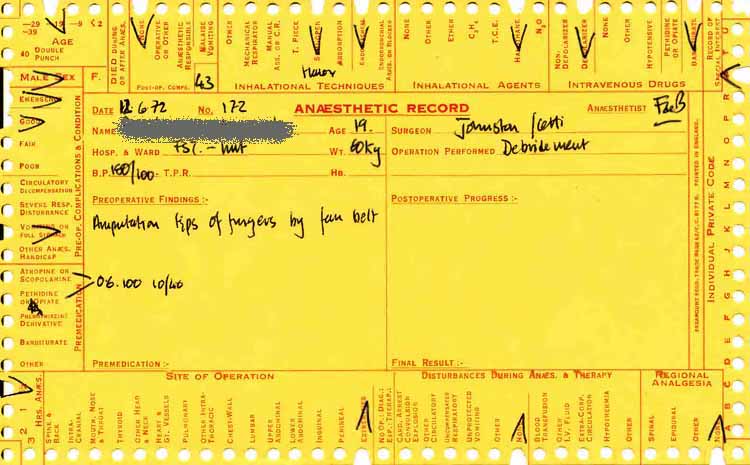 –29 –19 –9 < 2
–39
40 DOUBLE PUNCH
AGE
DIED DURING OR AFTER ANÆS.
NONE
OPERATIVE OR OTHER
ANÆSTHETIC RESPONSIBLE
MALAISE VOMITING
POST-OP. COMPS.
43
OTHER
MECHANICAL RESPIRATOR
MANUAL ASS. OR C.R.
T. PIECE
ABSORPTION
INHALATIONAL TECHNIQUES
NONE
OTHER
ETHER
C₂H₄
T.C.E.
N₂O
INHALATIONAL AGENTS
NON. DEPOLARIZER
DEPOLARIZER
NONE
OTHER
HYPOTENSIVE
PETHIDINE OR OPIATE
BARBITURATE
INTRAVENOUS DRUGS
RECORD OF SPECIAL INTEREST
MALE SEX F.
EMERGENCY
GOOD
FAIR
POOR
CIRCULATORY DECOMPENSATION
SEVERE RESP. DISTURBANCE
VOMITING OR FULL STOMACH
OTHER ANÆS. HANDICAP
PRE-OP. COMPLICATIONS & CONDITION
ATROPINE OR SCOPOLAMINE
PETHIDINE OR OPIATE
PHENOTHIAZINE DERIVATIVE
BARBITURATE
OTHER
PREMEDICATION
DATE 12.6.72 NO. 172 ANÆSTHETIC RECORD ANÆSTHETIST
NAME AGE 19. SURGEON Johnston /
HOSP. & WARD WT. 60Kg OPERATION PERFORMED Debridement
B.P. /100 - T.P.R. HB.
PREOPERATIVE FINDINGS :-
POSTOPERATIVE PROGRESS :-
Amputation tips of fingers by fan belt
06.100 10/40
PREMEDICATION :-
FINAL RESULT :-
PRINTED IN ENGLAND.
INDIVIDUAL PRIVATE CODE
A B C D E F G H I J K L M N O P R
3 2 1
HRS. ANÆS.
SITE OF OPERATION
SPINE & BACK
INTRA-CRANIAL
MOUTH, NOSE & THROAT
THYROID
OTHER HEAD & NECK
HEART & GT. VESSELS
PULMONARY
OTHER INTRA-THORACIC
CHEST-WALL
LUMBAR
UPPER ABDOMINAL
LOWER ABDOMINAL
INGUINAL
PERINEAL
DISTURBANCES DURING ANÆS. & THERAPY
NO OF : DIAG.: EXP.: THERAP.:
CARD. ARREST CONVULSION EXPLOSION
OTHER CIRCULATORY
UNCOMPENSATED RESPIRATORY
UNPROTECTED VOMITING
OTHER
NONE
BLOOD TRANSFUSION
OTHER I.V. FLUID
EXTRA-CORP. CIRCULATION
HYPOTHERMIA
OTHER
REGIONAL ANALGESIA
SPINAL
EPIDURAL
OTHER